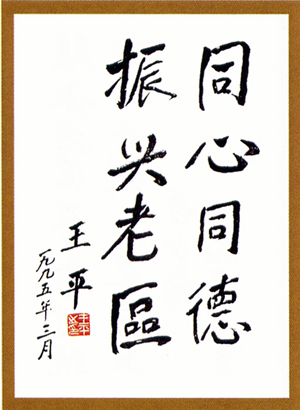 同心同德
振兴老區
王平
一九九五年三月